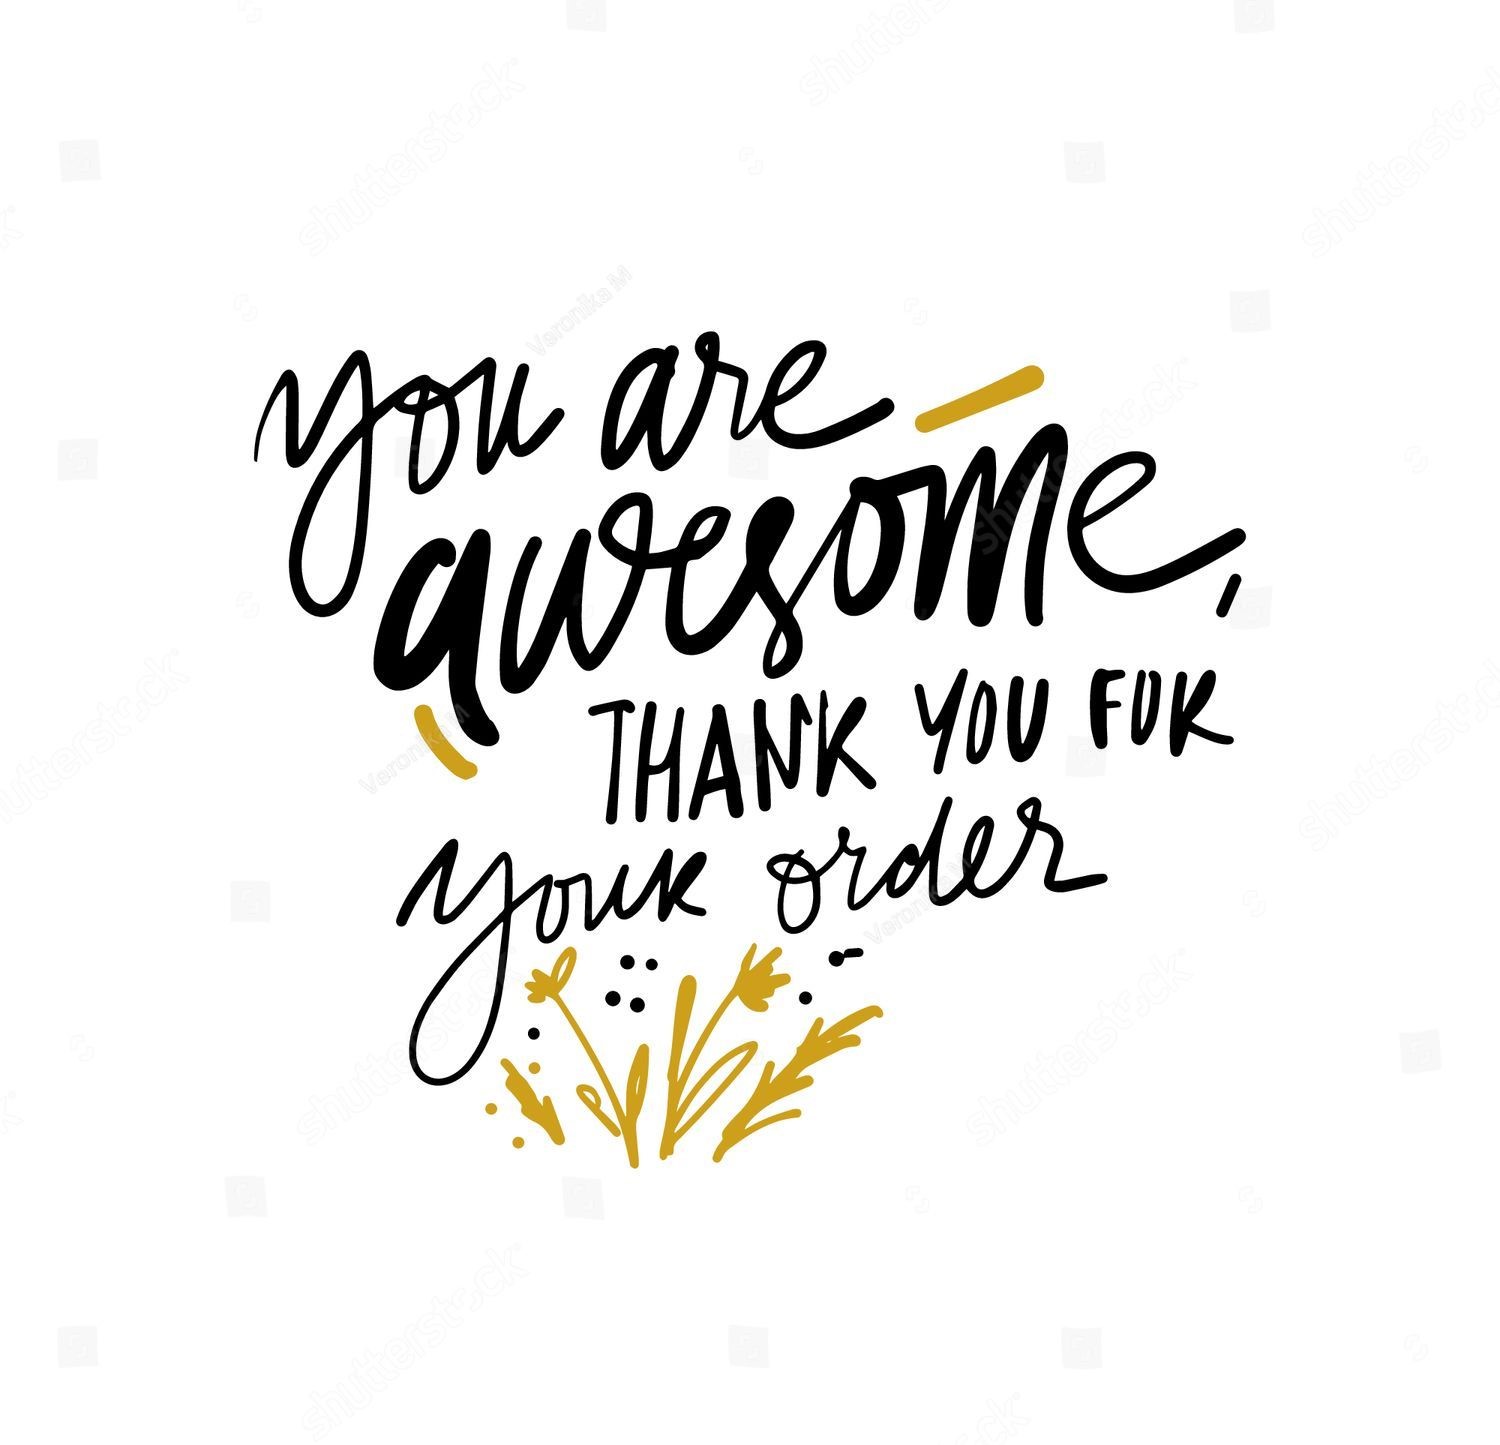 you are
awesome,
THANK YOU FOR
your order
shutterstock
Veronika M